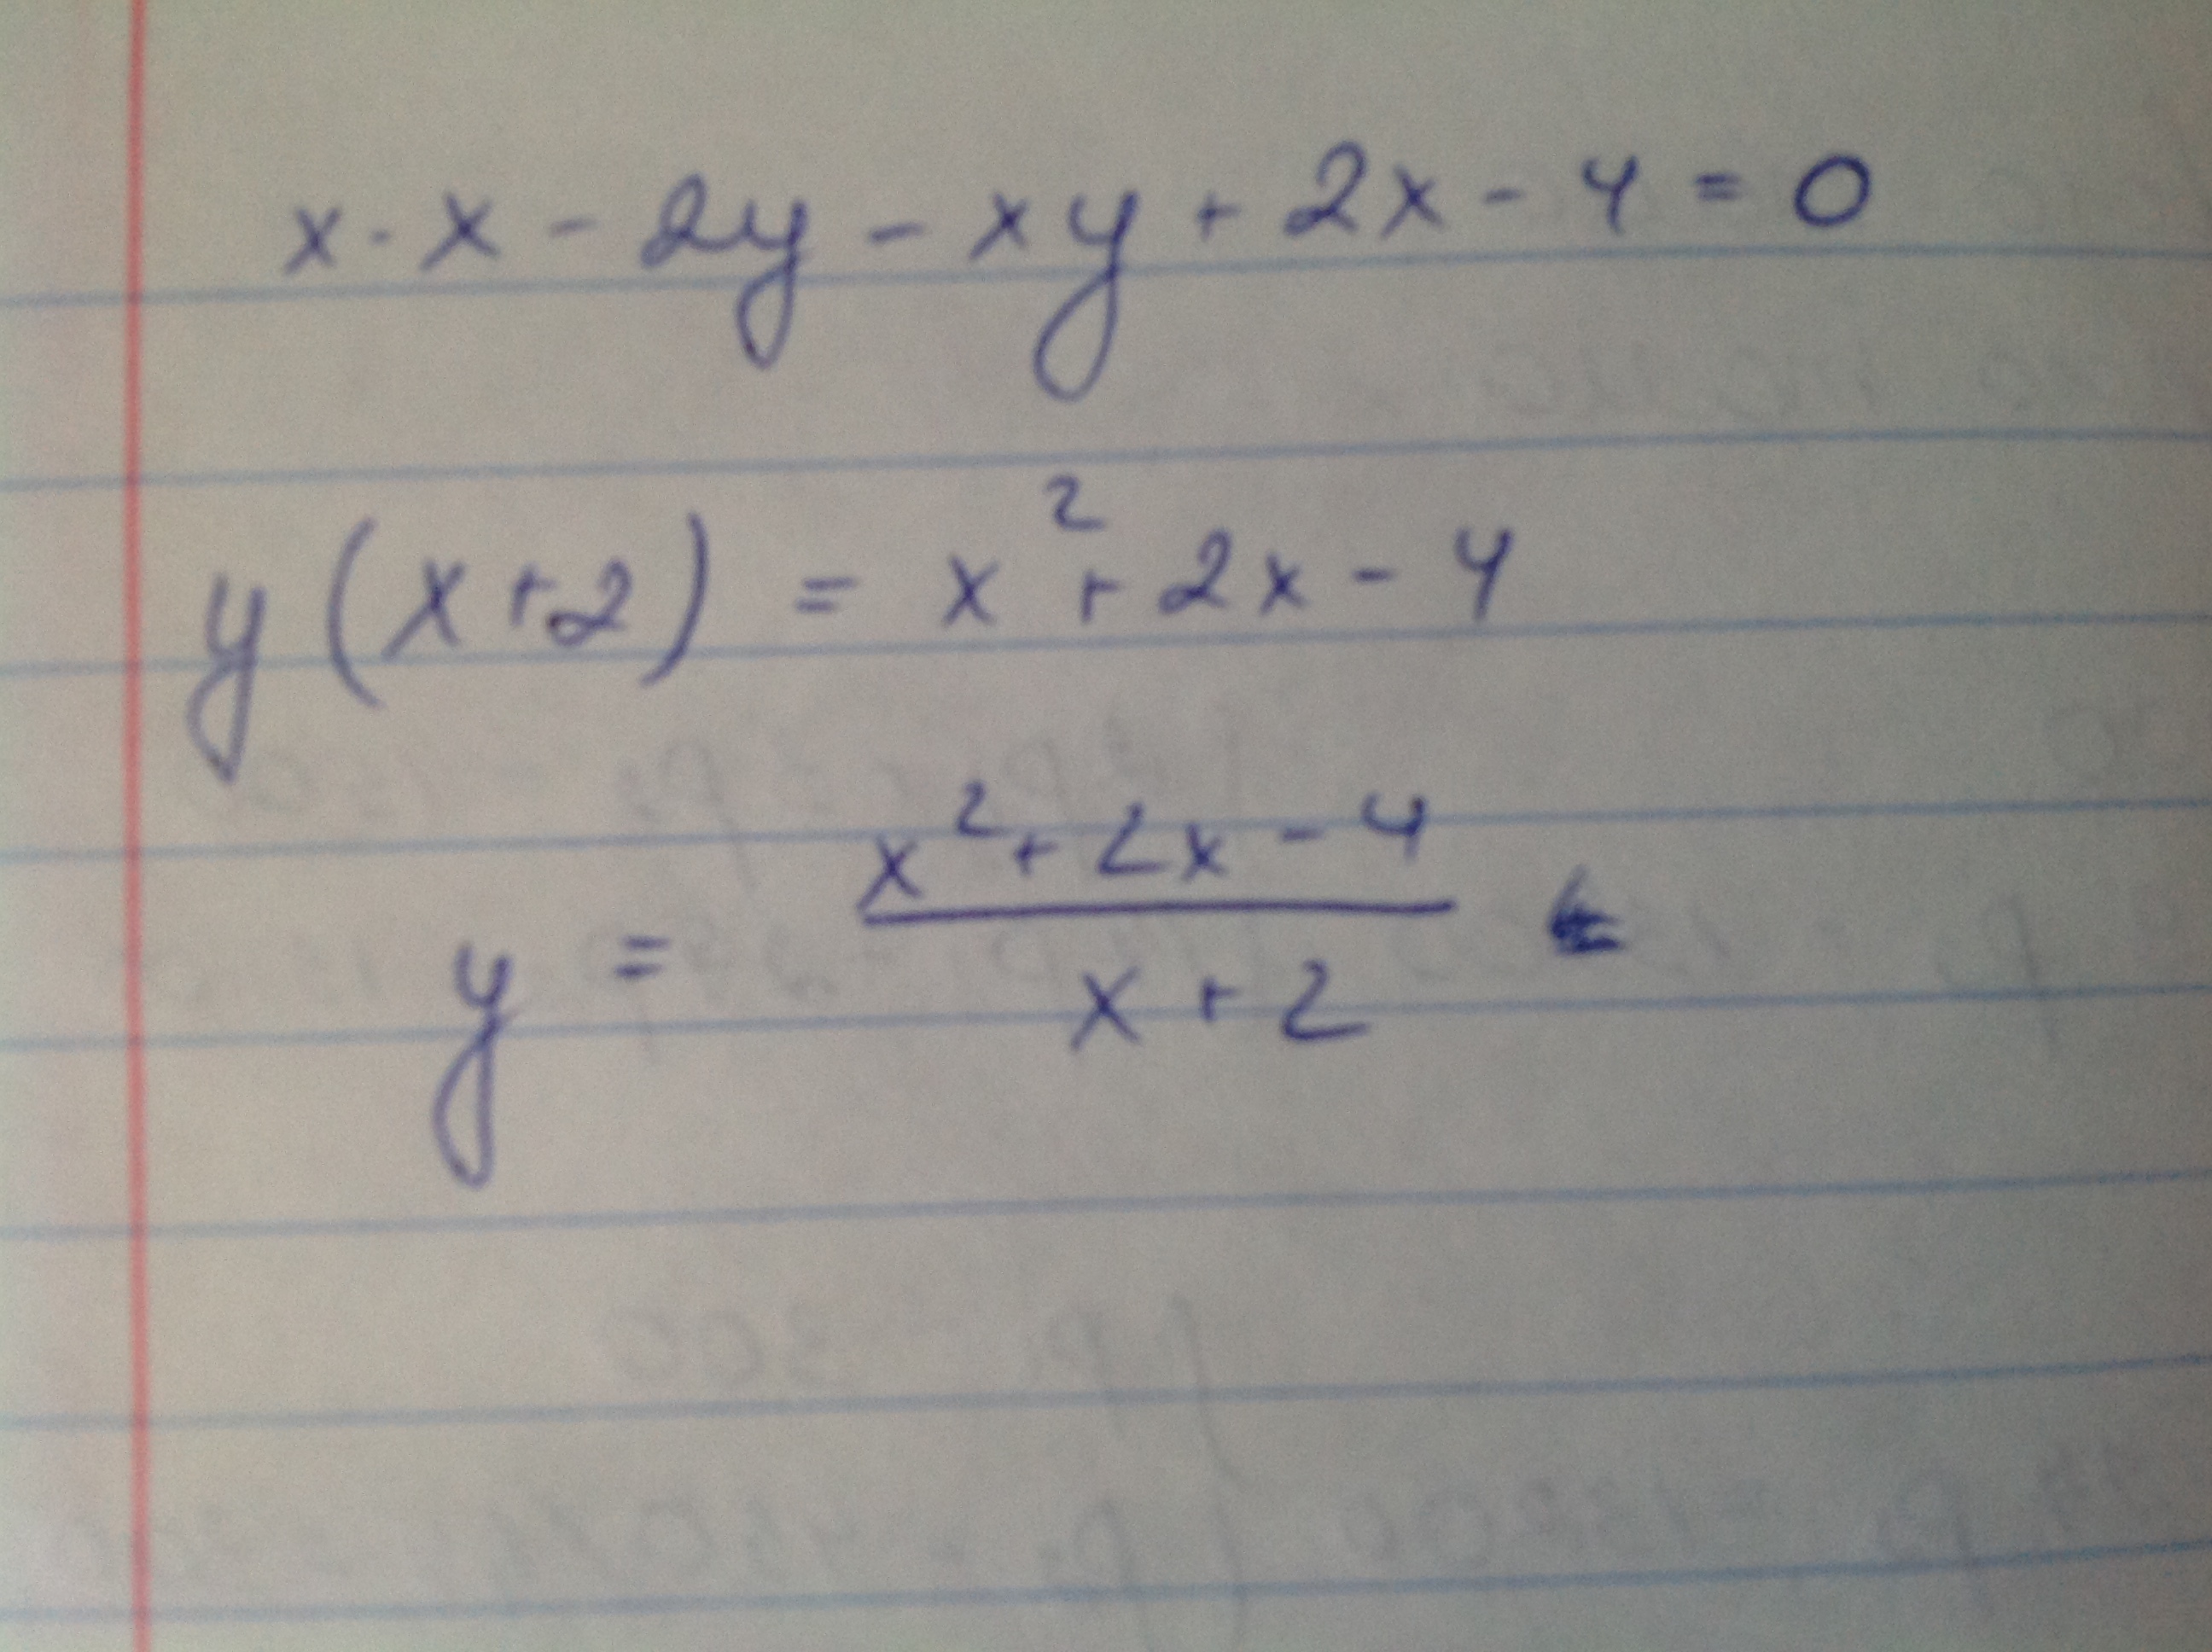 x · x - 2y - xy + 2x - 4 = 0
y (x+2) = x² + 2x - 4
y = (x² + 2x - 4) / (x + 2)